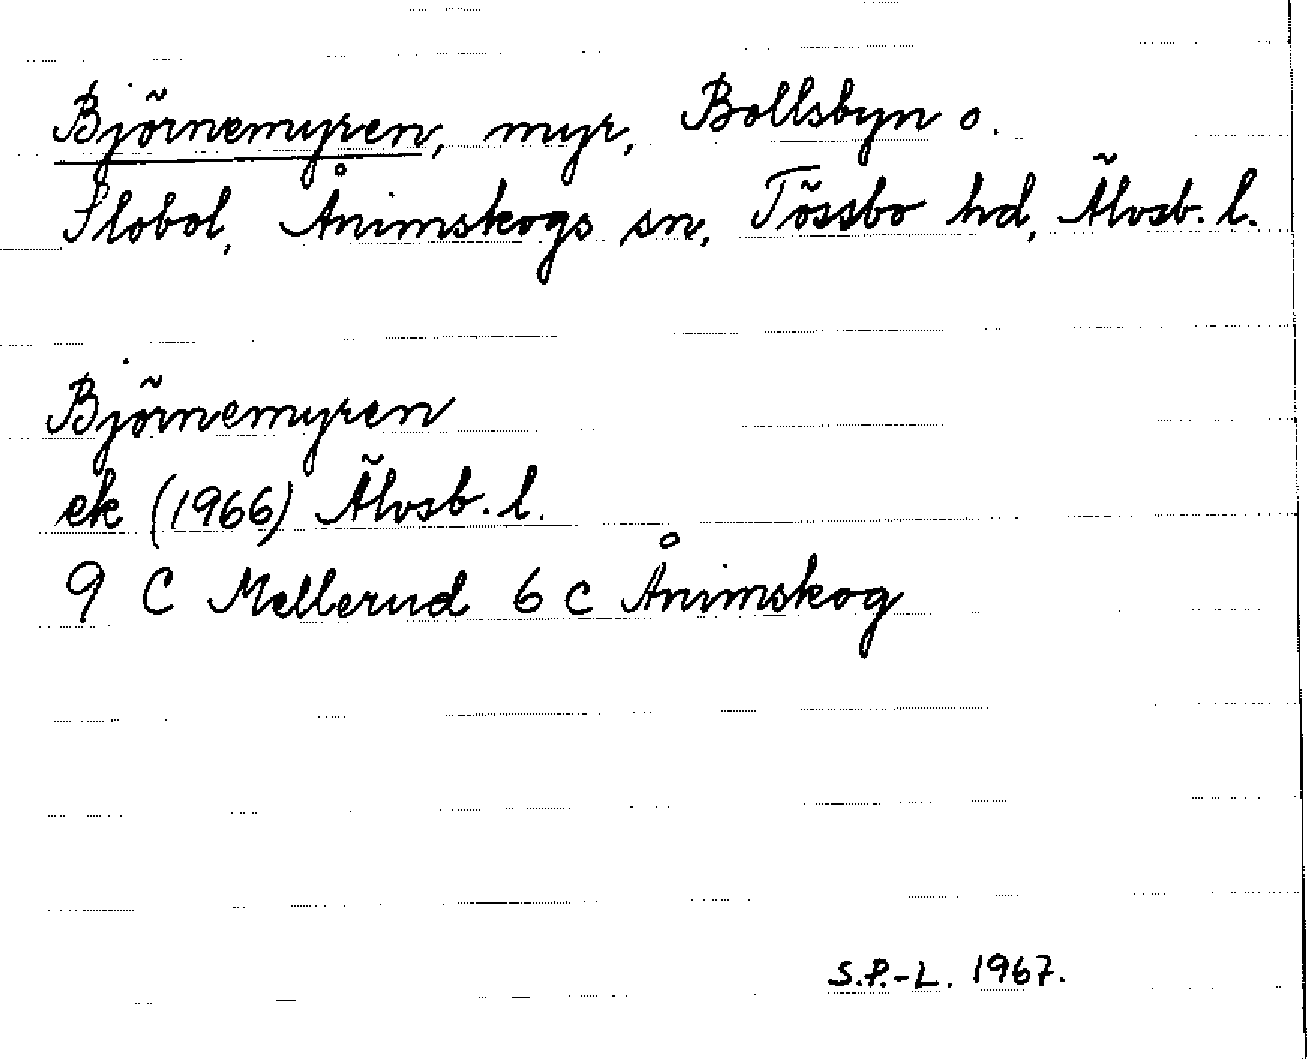 Björnemyren, myr, Bollsbyn o.
Slobol, Ånimskogs sn, Tössbo hd, Älvsb. l.
Björnemyren
ek (1966) Älvsb. l.
9 C Mellerud 6 c Ånimskog
S.P.-L. 1967.